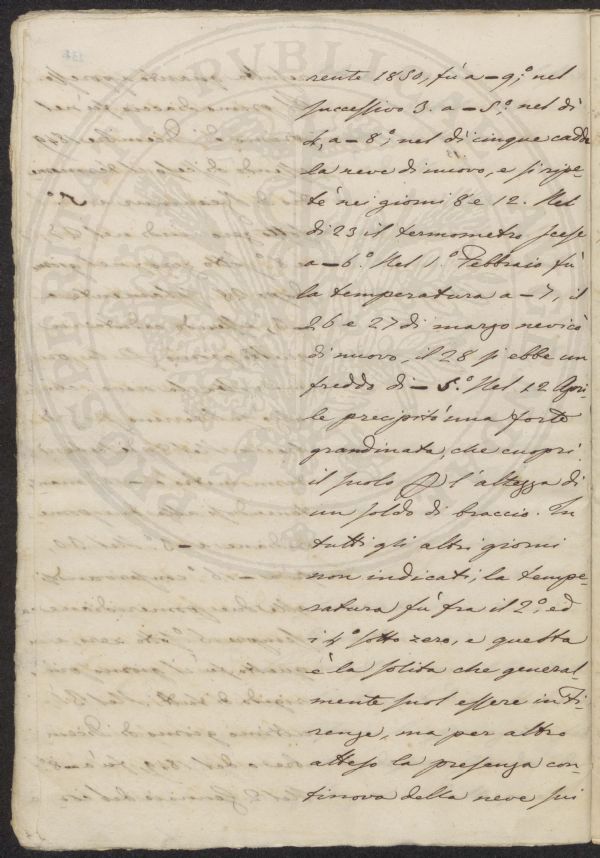 rente 1850, fù a – 9.° nel
successivo 3. a – 5.° nel dì
4, a – 8°; nel dì cinque cadde
la neve di nuovo, e si ripe-
tè nei giorni 8 e 12. Nel
dì 23 il termometro scese
a – 6.° Nel 1.° Febbraio fù
la temperatura a – 7, il
26 e 27 di marzo nevicò
di nuovo, il 28 si ebbe un
freddo di – 5.° Nel 12 Apri-
le precipitò una forte
grandinata, che cuoprì
il suolo l'altezza di
un soldo di braccio. In
tutti gli altri giorni
non indicati, la tempe-
ratura fù fra il 2°, ed
i 4° sotto zero, e questa
è la solita che general-
mente suol essere in Fi-
renze, ma per altro
atteso la presenza con-
tinova della neve sui